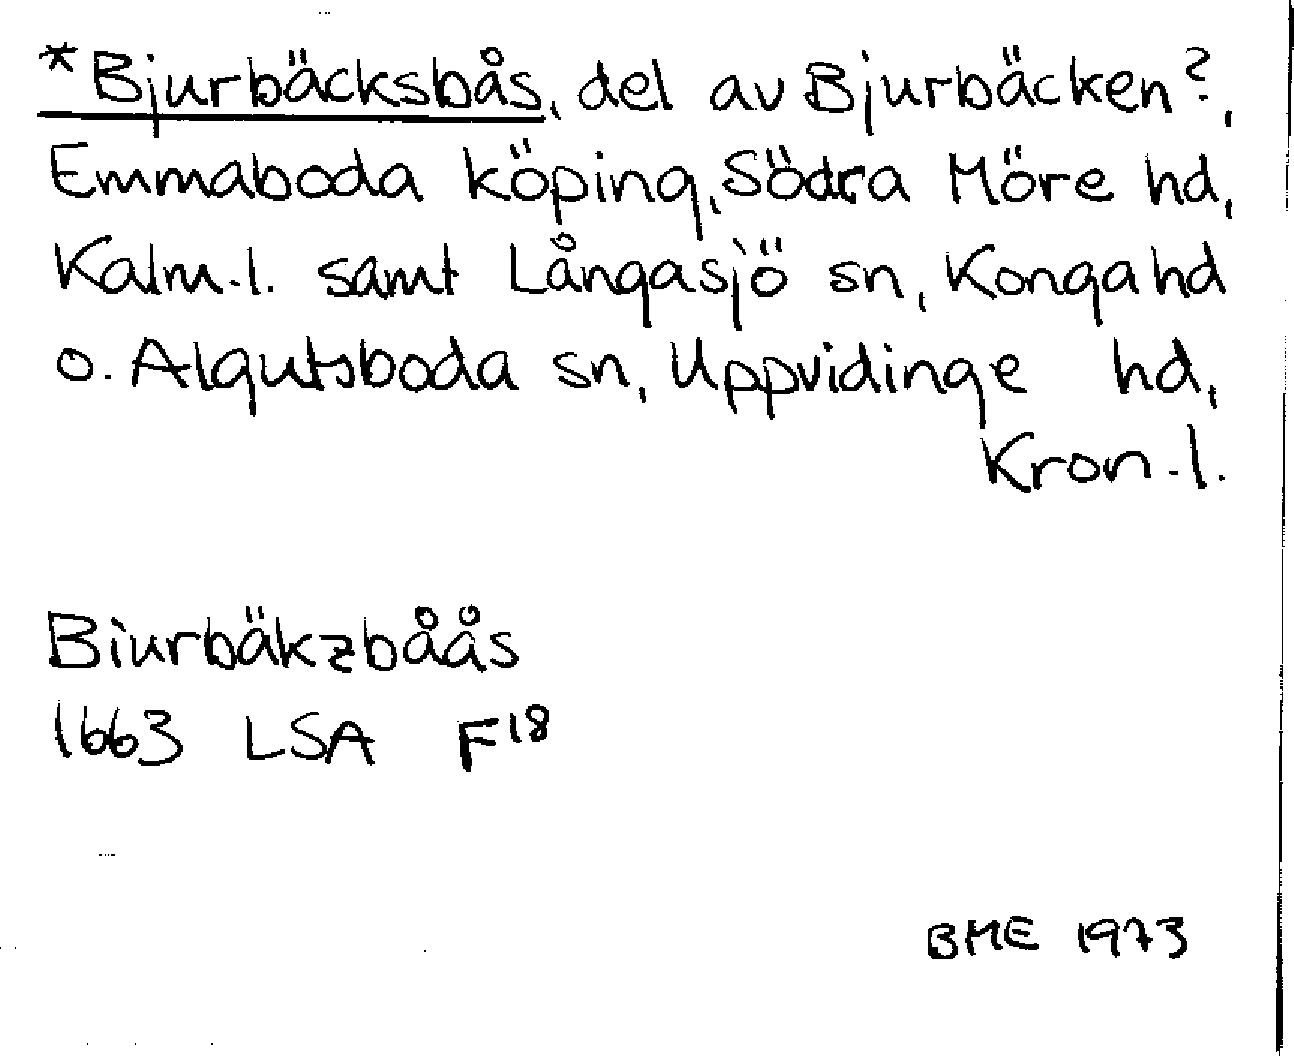 *Bjurbäcksbås, del av Bjurbäcken?,
Emmaboda köping, Södra Möre hd,
Kalm.l. samt Långasjö sn, Konga hd
o. Algutsboda sn, Uppvidinge hd,
Kron.l.
Biurbäkzbåås
1663 LSA F18
BME 1973